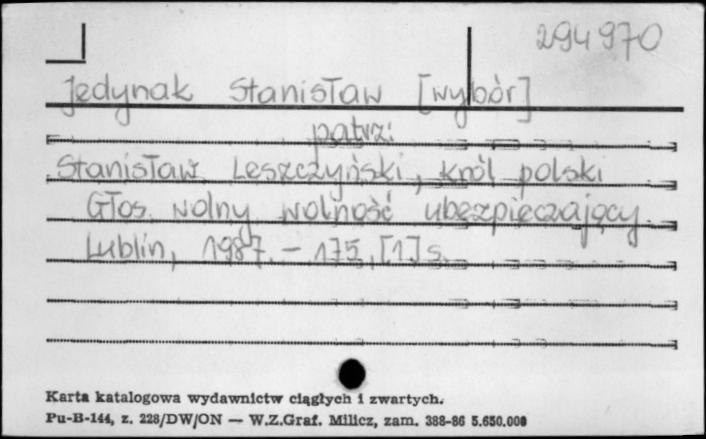 294970
Jedynak Stanisław [wybór]
patrz:
Stanisław Leszczyński, król polski
Głos wolny wolność ubezpieczający
Lublin, 1987. – 175, [1] s.
Karta katalogowa wydawnictw ciągłych i zwartych.
Pu-B-144, z. 228/DW/ON — W.Z.Graf. Milicz, zam. 388-86 5.650.000